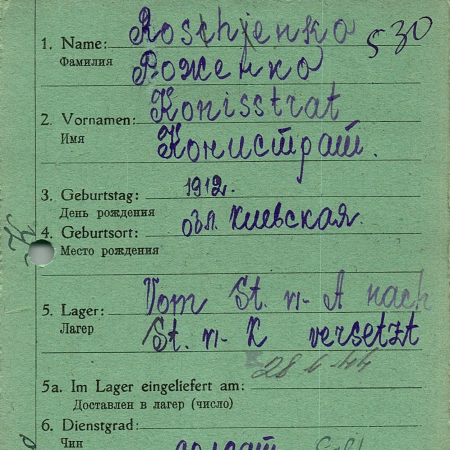 Roschjenko
1. Name:
530
Фамилия
Роженко
Konisstrat
2. Vornamen:
Имя
Конистрат.
3. Geburtstag: 1912.
День рождения
4. Geburtsort: обл. Киевская
Место рождения
Vom St. m- A nach
5. Lager:
Лагерь
St. m- K versetzt
28 4 44
5a. Im Lager eingeliefert am:
Доставлен в лагерь (число)
6. Dienstgrad:
Чин
солдат